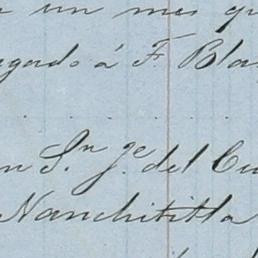 un mes
á F. Bla
n Sn. Je. del Cu
Nanchititla